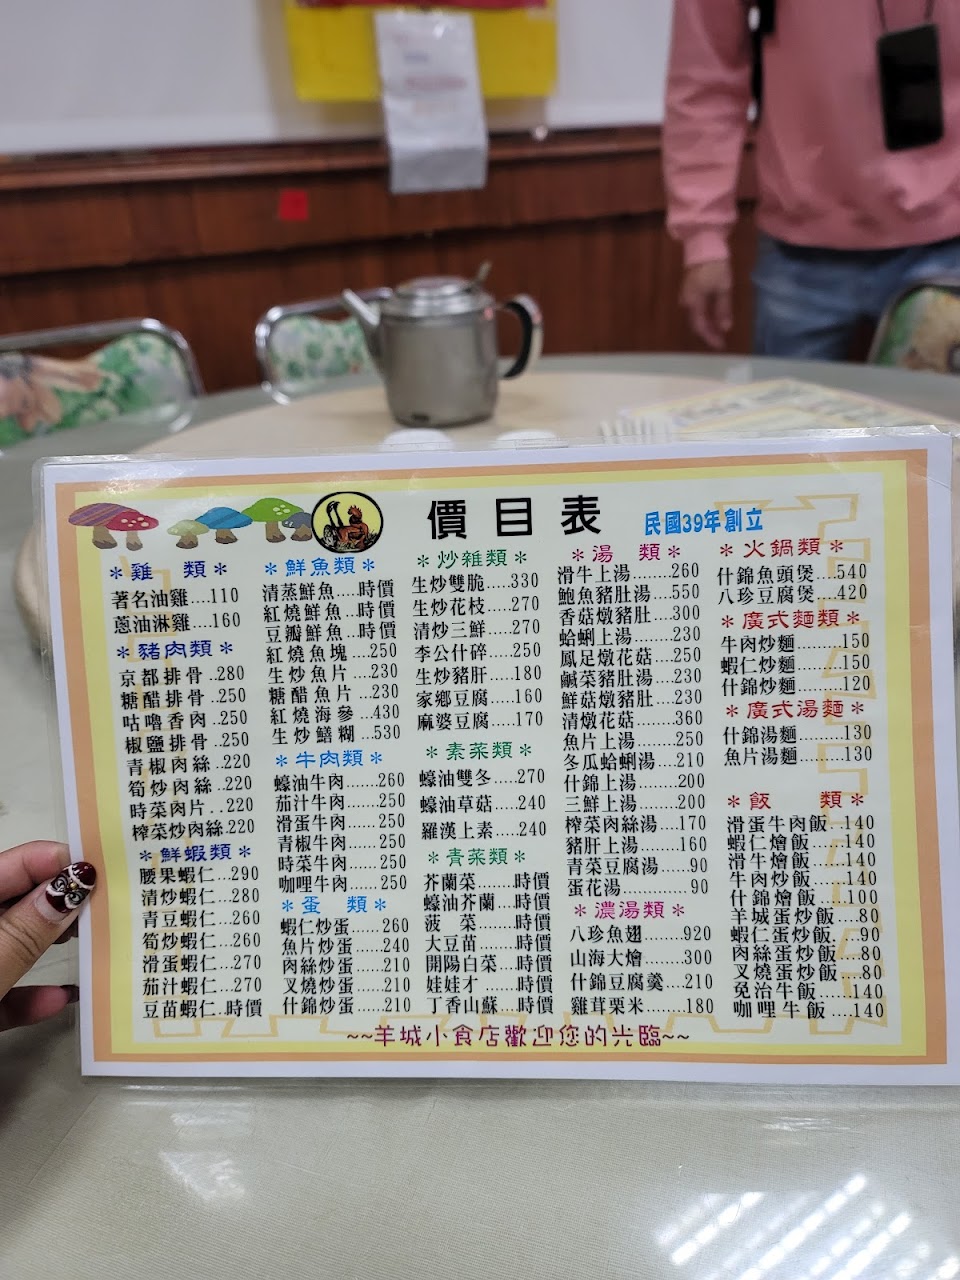 價目表
民國39年創立
＊雞　類＊
著名油雞....110
蔥油淋雞....160
＊豬肉類＊
京都排骨..280
糖醋排骨..250
咕嚕香肉..250
椒鹽排骨..250
青椒肉絲..220
筍炒肉絲..220
時菜肉片..220
榨菜炒肉絲.220
＊鮮蝦類＊
腰果蝦仁...290
清炒蝦仁...280
青豆蝦仁...260
筍炒蝦仁...260
滑蛋蝦仁...270
茄汁蝦仁...270
豆苗蝦仁..時價
＊鮮魚類＊
清蒸鮮魚....時價
紅燒鮮魚...時價
豆瓣鮮魚...時價
紅燒魚塊....250
生炒魚片....230
糖醋魚片...230
紅燒海參...430
生炒鱔糊...530
＊牛肉類＊
蠔油牛肉......260
茄汁牛肉......250
滑蛋牛肉......250
青椒牛肉......250
時菜牛肉......250
咖哩牛肉......250
＊蛋　類＊
蝦仁炒蛋......260
魚片炒蛋......240
肉絲炒蛋......210
叉燒炒蛋......210
什錦炒蛋......210
＊炒雜類＊
生炒雙脆.....330
生炒花枝.....270
清炒三鮮.....270
李公什碎.....250
生炒豬肝.....180
家鄉豆腐.....160
麻婆豆腐.....170
＊素菜類＊
蠔油雙冬....270
蠔油草菇....240
羅漢上素....240
＊青菜類＊
芥蘭菜.......時價
蠔油芥蘭...時價
菠　菜.......時價
大豆苗.......時價
開陽白菜...時價
娃娃才.......時價
丁香山蘇...時價
＊湯　類＊
滑牛上湯........260
鮑魚豬肚湯....550
香菇燉豬肚....300
蛤蜊上湯........230
鳳足燉花菇....250
鹹菜豬肚湯....230
鮮菇燉豬肚....230
清燉花菇........360
魚片上湯........250
冬瓜蛤蜊湯....210
什錦上湯........200
三鮮上湯........200
榨菜肉絲湯....170
豬肝上湯........160
青菜豆腐湯.....90
蛋花湯............90
＊濃湯類＊
八珍魚翅........920
山海大燴........300
什錦豆腐羹....210
雞茸粟米........180
＊火鍋類＊
什錦魚頭煲....540
八珍豆腐煲....420
＊廣式麵類＊
牛肉炒麵........150
蝦仁炒麵........150
什錦炒麵........120
＊廣式湯麵＊
什錦湯麵........130
魚片湯麵........130
＊飯　類＊
滑蛋牛肉飯..140
蝦仁燴飯.....140
滑牛燴飯.....140
牛肉炒飯.....140
什錦燴飯.....100
羊城蛋炒飯....80
蝦仁蛋炒飯....90
肉絲蛋炒飯....80
叉燒蛋炒飯....80
免治牛飯......140
咖哩牛飯....140
~~羊城小食店歡迎您的光臨~~